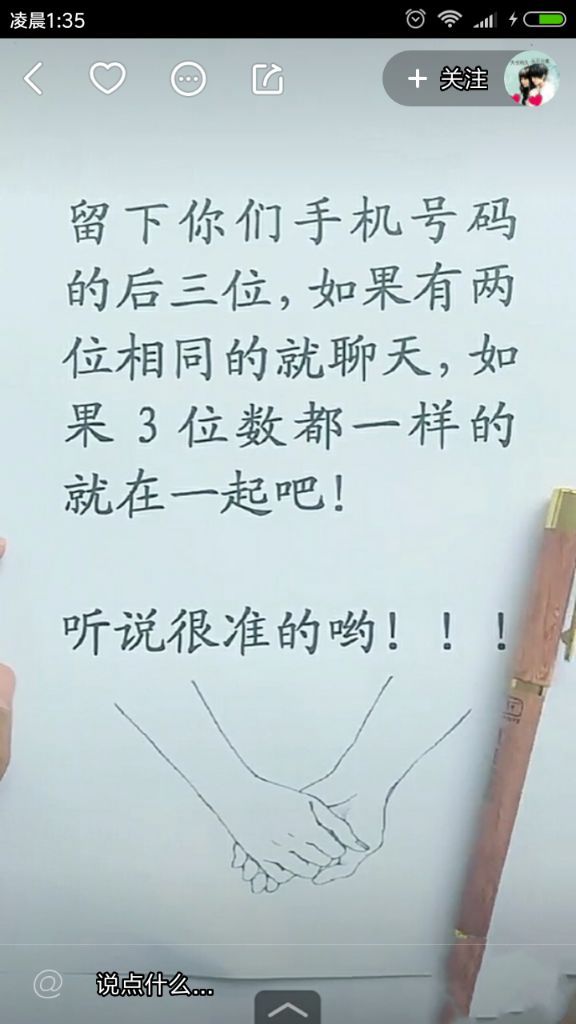 凌晨1:35
+ 关注
留下你们手机号码
的后三位，如果有两
位相同的就聊天，如
果 3 位数都一样的
就在一起吧！
听说很准的哟！！！
@ 说点什么...